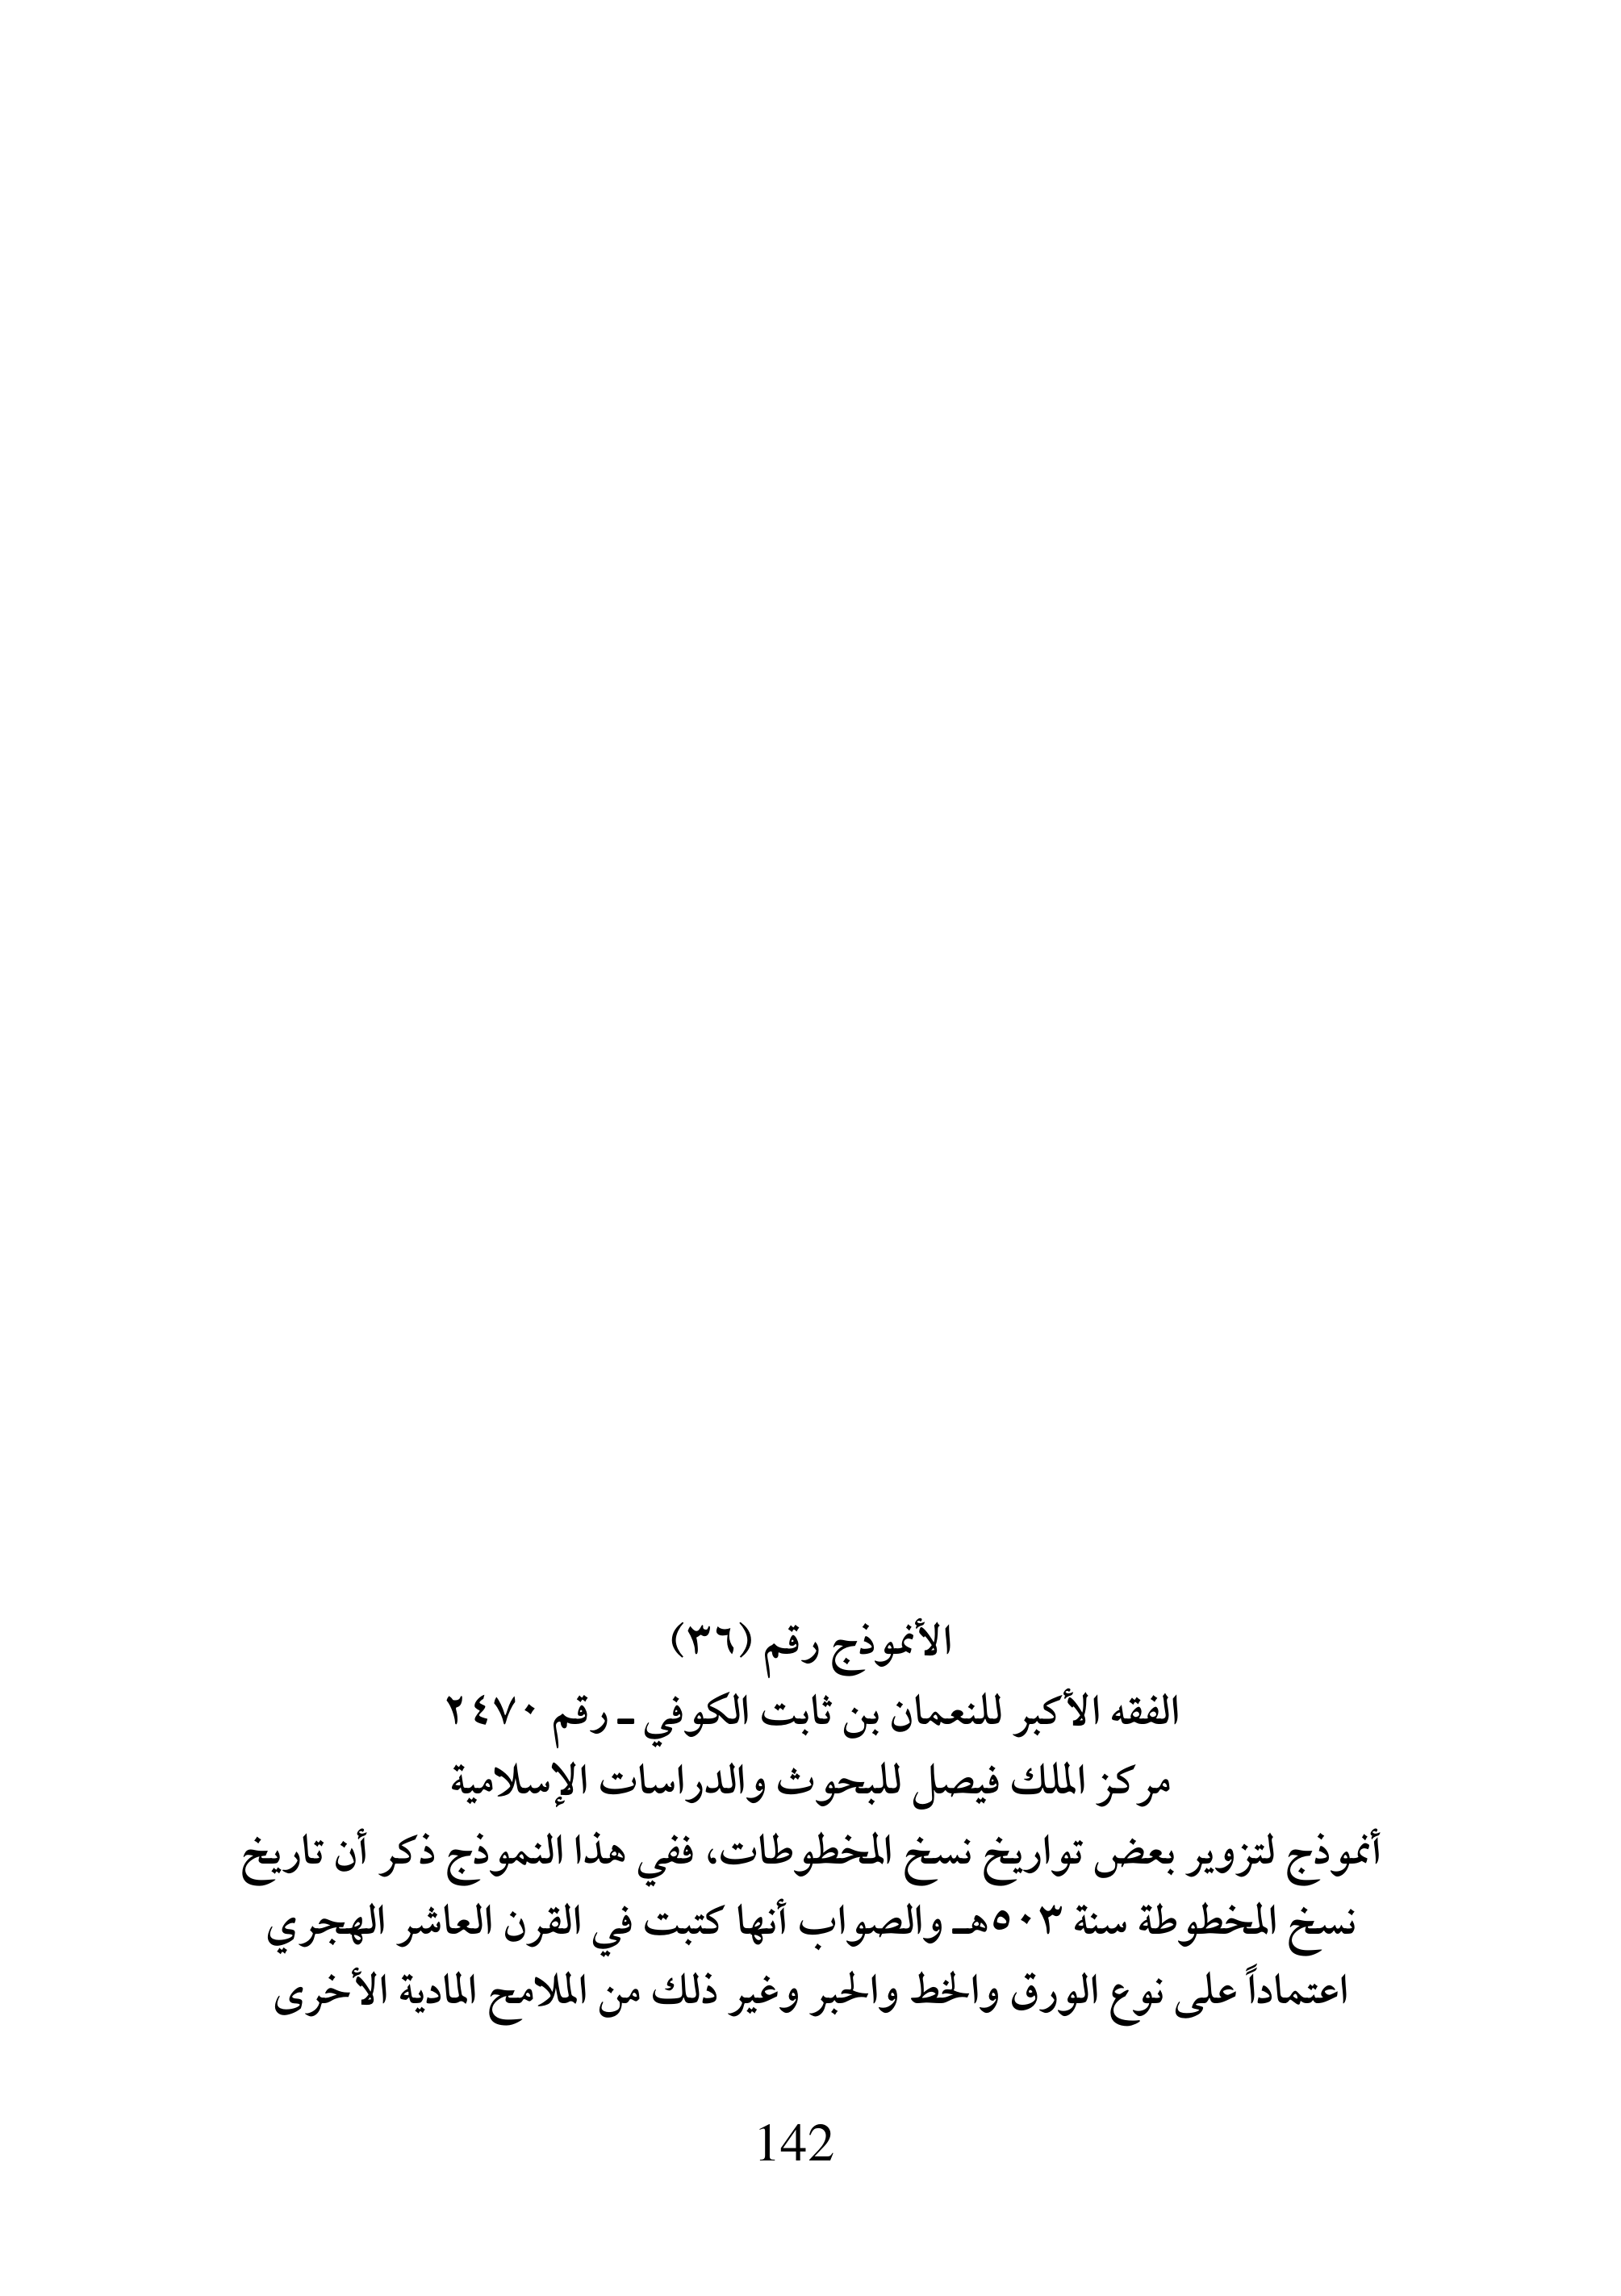 الأنموذج رقم (٣٦)
الفقه الأكبر للنعمان بن ثابت الكوفي ـ رقم ٢٤٧٠
مركز الملك فيصل للبحوث والدراسات الإسلامية
أنموذج لتزوير بعض تواريخ نسخ المخطوطات، ففي هذا النموذج ذكر أن تاريخ
نسخ المخطوطة سنة ٥٠٣هـ والصواب أنها كتبت في القرن العاشر الهجري
اعتماداً على نوع الورق والخط والحبر وغير ذلك من الملامح المادية الأخرى
142